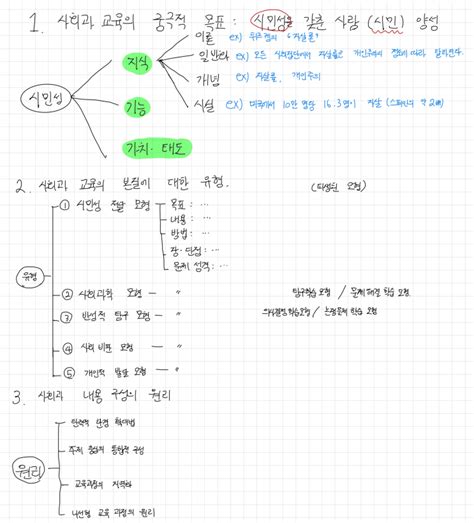 1. 사회과 교육의 궁극적 목표 : 시민성을 갖춘 사람 (시민) 양성
시민성
지식
이론 ex) 뒤르켐의 "자살론"
일반화 ex) 모든 사회집단에서 자살률은 개인주의의 정도에 따라 달라진다.
개념 ex) 자살률, 개인주의
사실 ex) 미국에서 10만 명당 16.3명이 자살 (스페인의 약 2배)
기능
가치·태도
2. 사회과 교육의 본질에 대한 유형. (대안적 모형)
유형
① 시민성 전달 모형
목표 : …
내용 : …
방법 : …
장·단점 : …
문제 성격 : …
② 사회과학 모형 — 〃 탐구학습 모형 / 문제 해결 학습 모형
③ 반성적 탐구 모형 — 〃 의사결정 학습모형 / 논쟁문제 학습 모형
④ 사회 비판 모형 — 〃
⑤ 개인적 발달 모형 — 〃
3. 사회과 내용 구성의 원리
원리
탄력적 환경 확대법
주제 중심의 통합적 구성
교육과정의 지역화
나선형 교육 과정의 원리